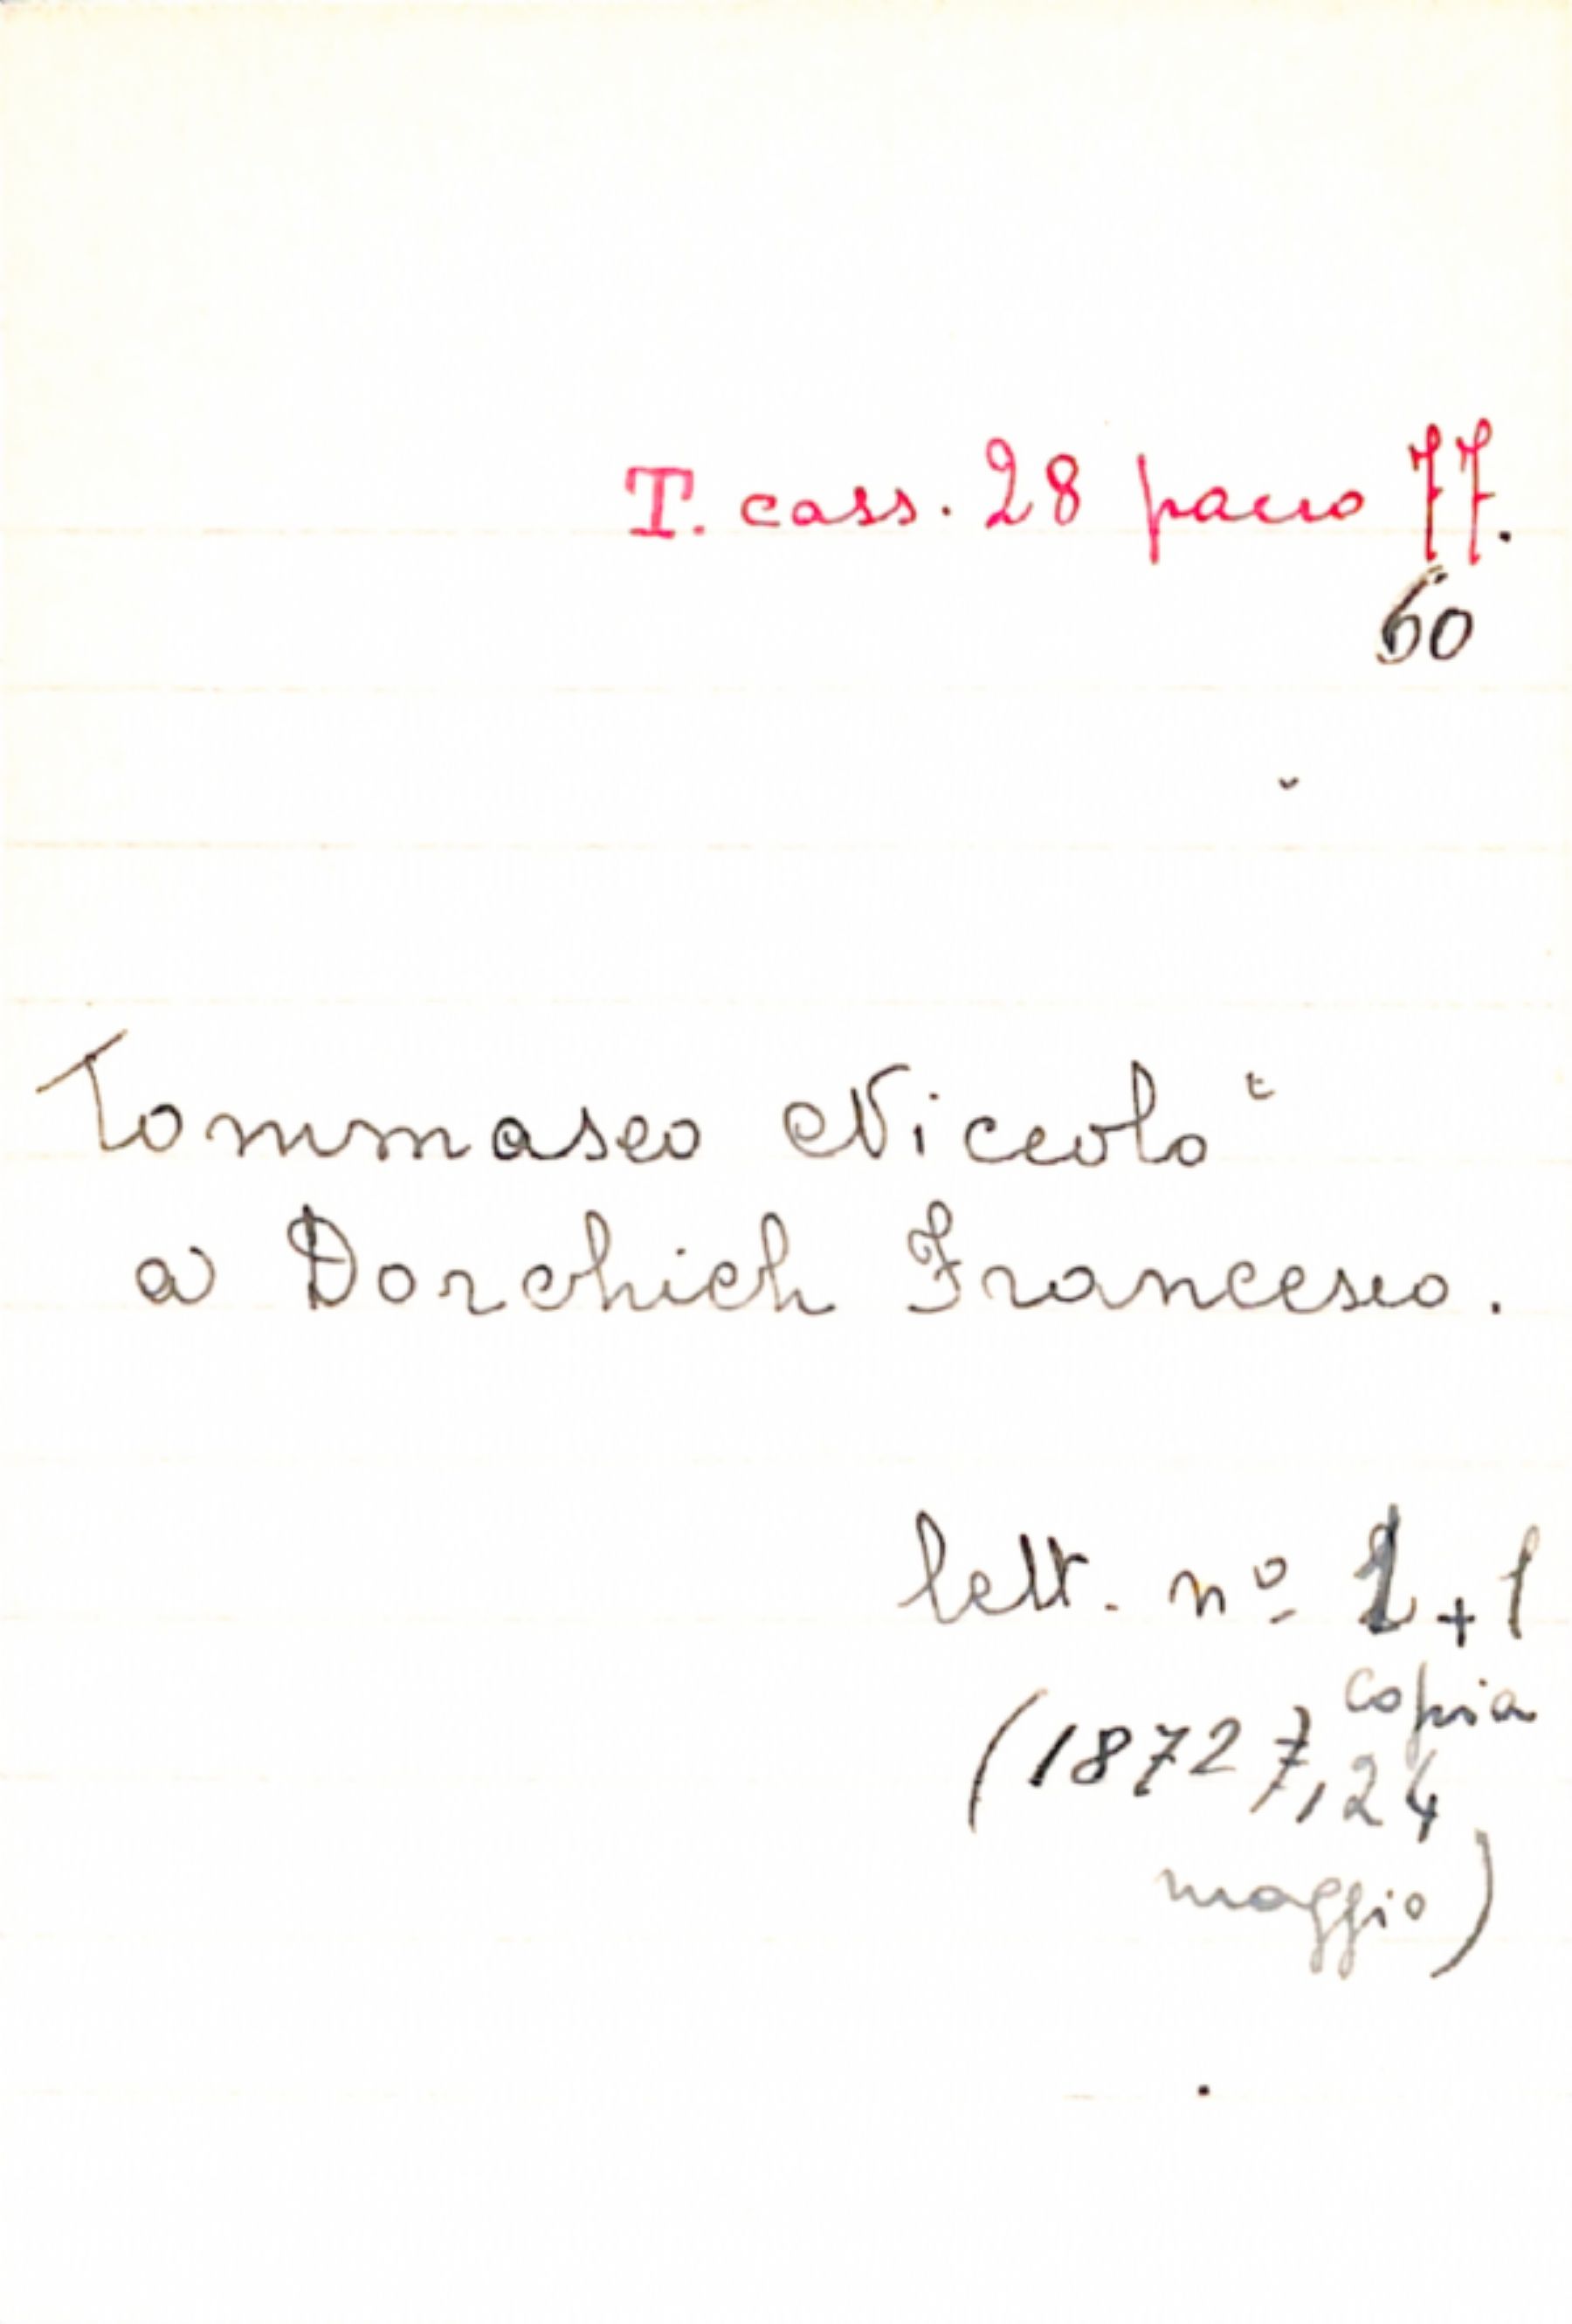 T. cass. 28 pacco 77.
60
Tommaseo Niccolò
a Dorchich Francesco.
lett. nº 2+1
copia
(1872 7, 24
maggio)